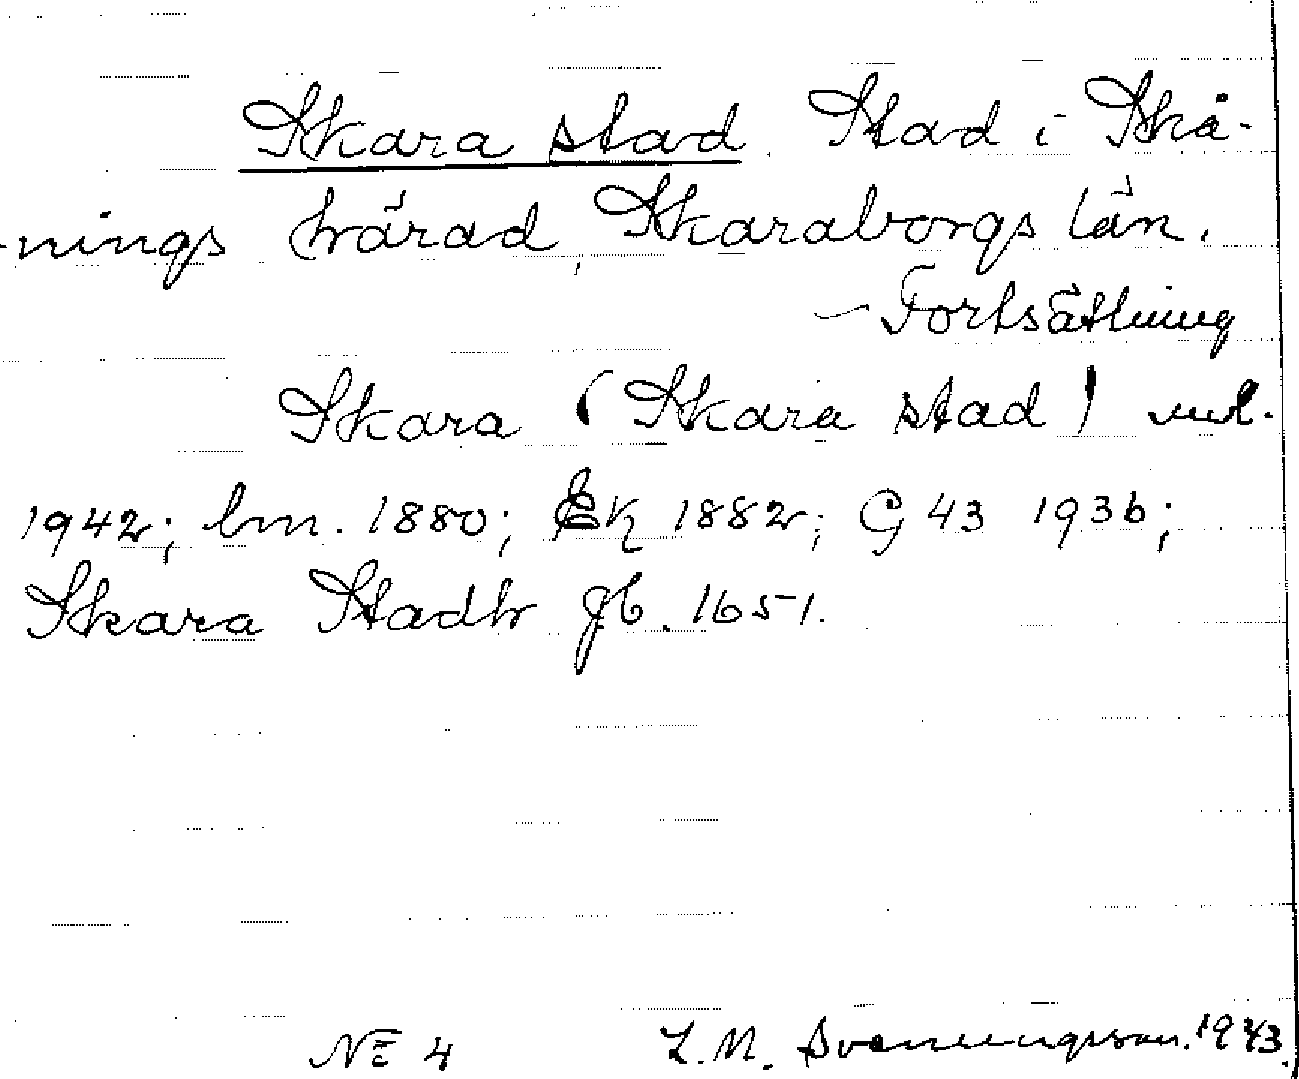 Skara stad. Stad i Skå-
nings härad, Skaraborgs län.
– Fortsättning
Skara (Skara stad) utt.
1942; bm. 1880; EK 1882; G 43 1936;
Skara Stadh gb. 1651.
NE 4 L.M. Svenungsson. 1943.